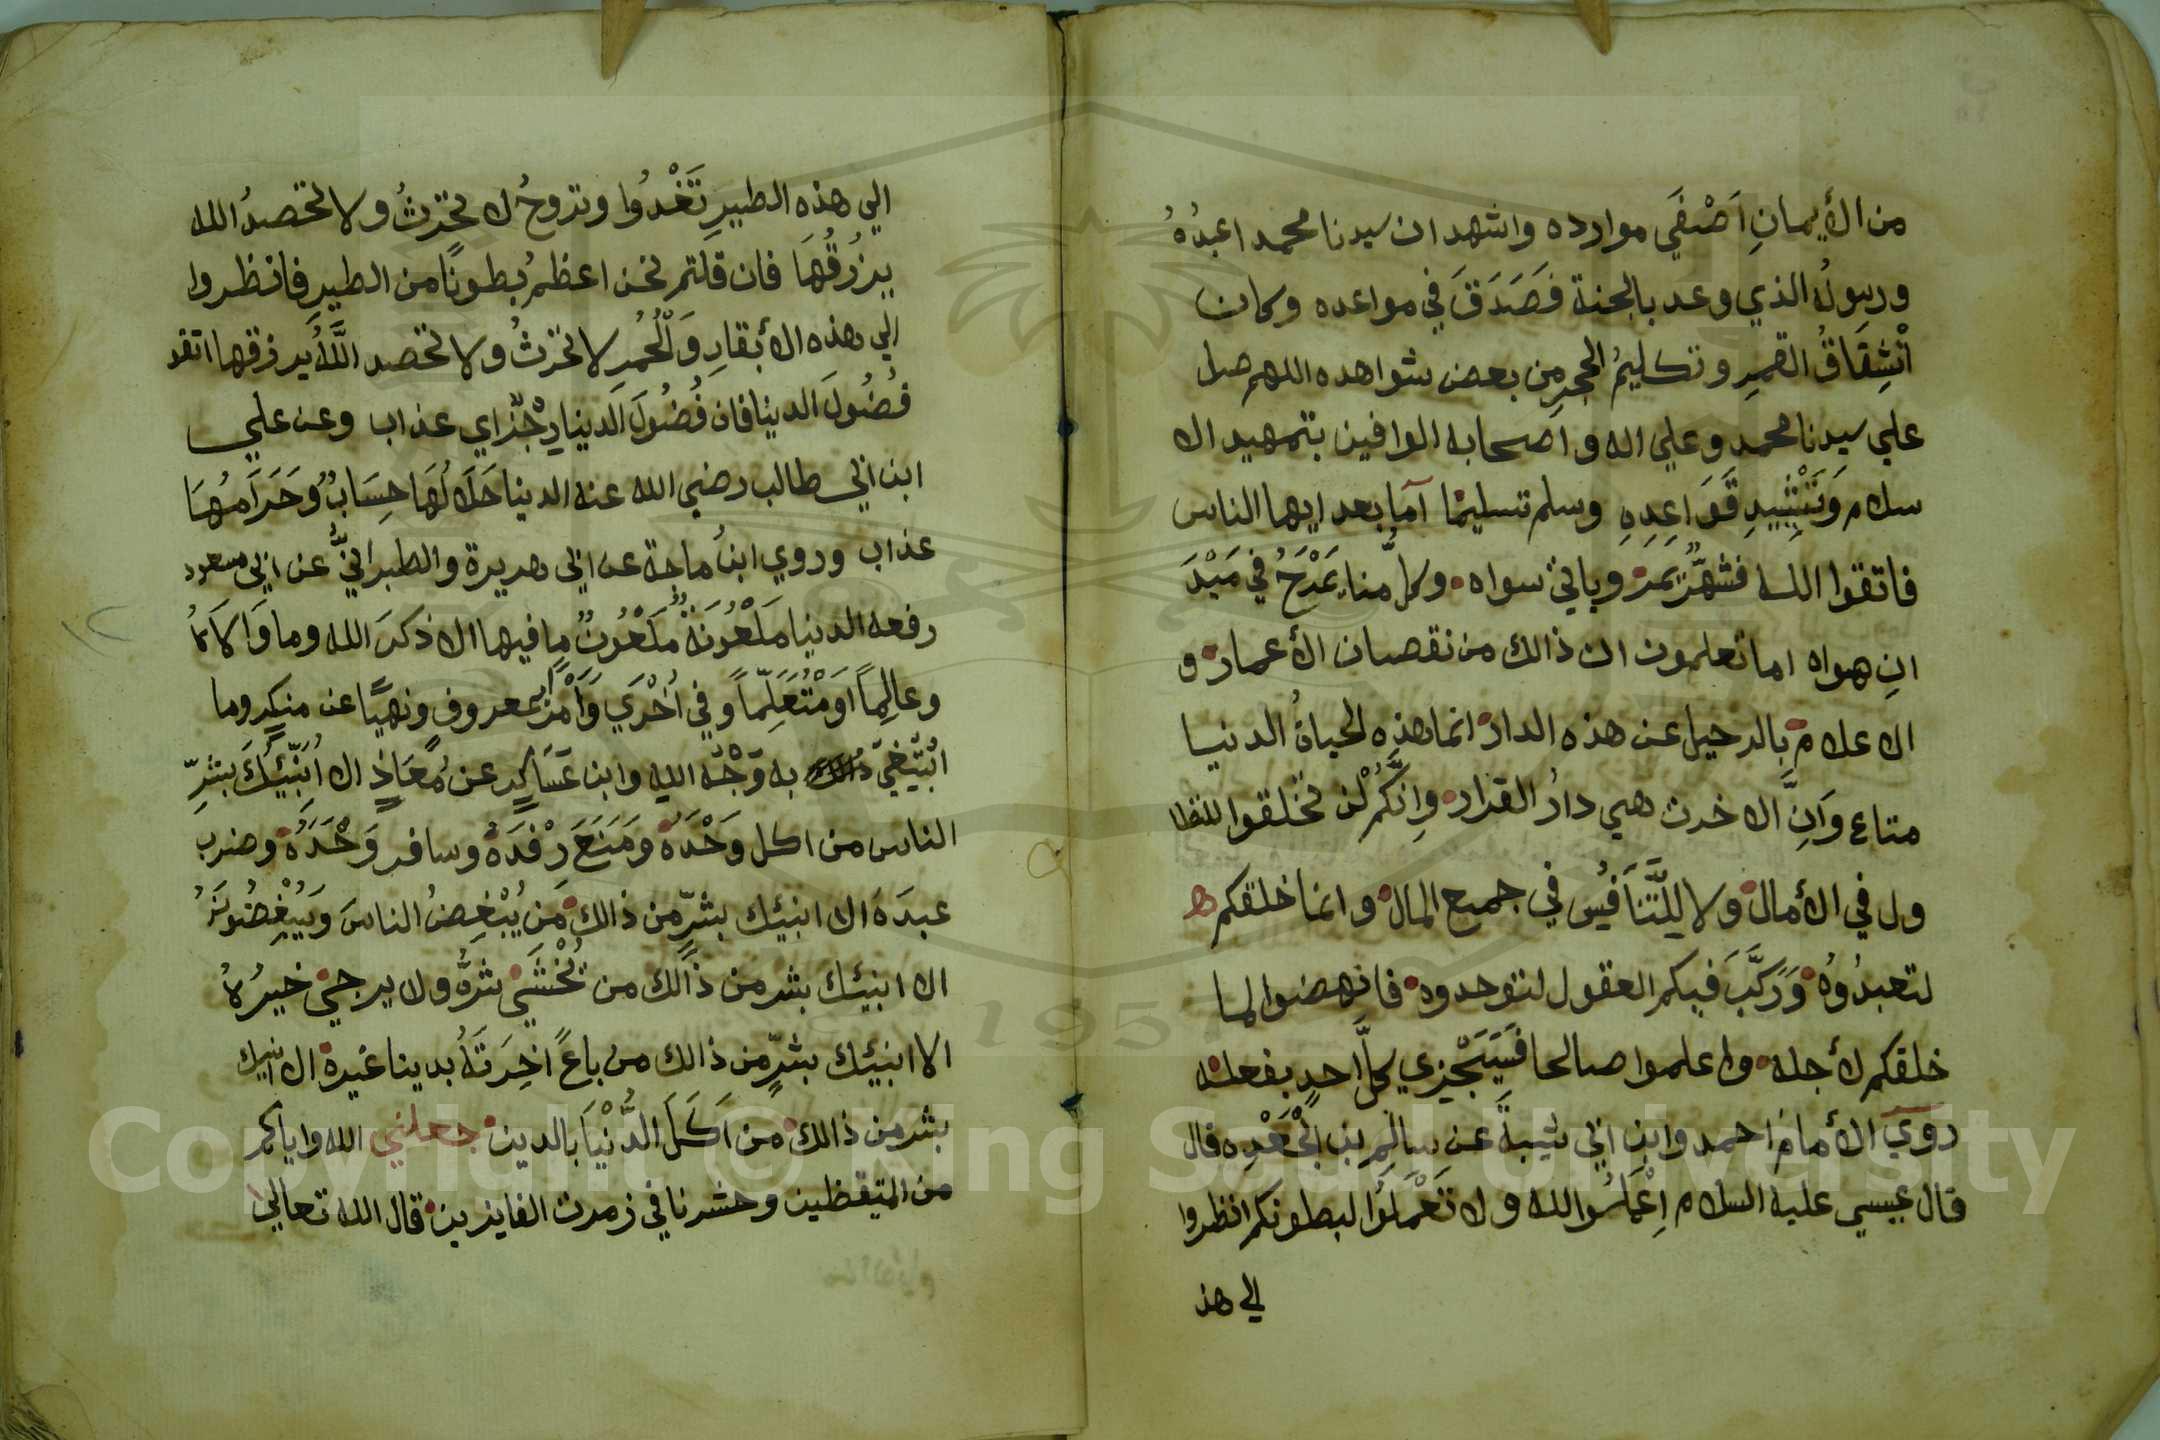 من الأيمانِ اَصْفَي موارده واشهد ان سيدنا محمد اعبدُهُ
ورسولُه الذي وعد بالجنة فَصَدَقَ في مواعده وكان
اْنْشِقَاقُ القمرِ وتكليمُ الحجرِ من بعض شواهده اللهم صل
علي سيدنا محمد وعلي اله واصحابه الوافين بتمهيد الا
سلام وَتَشْيِيدِ قَوَاعِدِهِ وسلم تسليمًا اَما بعد ايها الناس
فاتقوا الله فشهرٌ يمرّ وياتي سواه وكلٌ منا يَمْرَحُ في مَيْدَ
انِ هواه اما تعلمون ان ذالك من نقصان الأعمار و
الاعلام بالرحيل عن هذه الدار انما هذِه الحياةُ الدنيا
متاع وَاِنَّ الاخرت هي دارُ القرار واِنكُّم لن تخلقوا للتطا
ول في الأمال ولا للتَّنَافُسِ في جميع المال وانما خلقكم
لتعبدُوُه وَرَكَّبَ فيكم العقول لتوحدوه فانهضوا لما
خلقكم لأجله واعلموا صالحا فَسَيَجْزي كلَّ احدٍ بفعله
رَوَي الأمام احمد وابن ابي شيبةَ عن سالِم بن الْجَعْدِه قال
قال عيسي عليه السلام اِعْمَلُوا لله ولا تَعْمَلُوا لبطونكم انظروا
الي هذ
الي هذه الطيرِ تَغْدُوا وتروحُ لا تحْرثُ ولا تحصدُ الله
يرزُقُهَا فان قلتم نحن اعظمُ بطونًا من الطيرِ فانظروا
الي هذه الأبقارِ وَالْحُمُرِ لا تحْرثُ ولا تحصد اللَّهُ يرزقها اتقو
فُضُولَ الدنيا فان فُضُولَ الدنيا رِجْزٌ اي عذاب وعن علي
ابن ابي طالب رضي الله عنه الدنيا حَلَالُهَا حِسَابٌ وَحَرَامُهَا
عذاب وروي ابنُ ماجة عن ابي هريرة والطبرانيُّ عن ابي مسعود
رفعه الدنيا مَلْعُونَةٌ مَلْعُونٌ ما فيها الا ذكرَ الله وما وَالَاهُ
وعالِماً اَوْ مُتَعَلِّماً وفي اُخْرَي وَاَمْرًا بمعروفٍ ونهيًا عن منكرٍ وما
ابْتُغِيَ به وَجْهُ الله وابن عَسَاكِرٍ عن مُعَاذٍ الا اُنَبِّئُكَ بشرِّ
الناس من اكل وَحْدَهُ وَمَنَعَ رِفْدَهُ وسافر وَحْدَهُ وضرب
عبدَهُ الا انبئك بشرٍّ من ذالك مَن يُبْغِضُ الناسَ وَيُبْغِضُونَهُ
الا انبئك بشر من ذالك من يُخْشَي شرُّه ولا يرجي خيرُهُ
الا انبئك بشرٍّ من ذالك من باعَ اخِرَتَهُ بدينا غيره الا انبئك
بشر من ذالك من اَكَلَ الدُّنْيَا بالدين جعلني الله واياكم
من المتيقظين وحشرنا في زمرت الفايزين قال الله تعالي
Copyright © King Saud University
1957